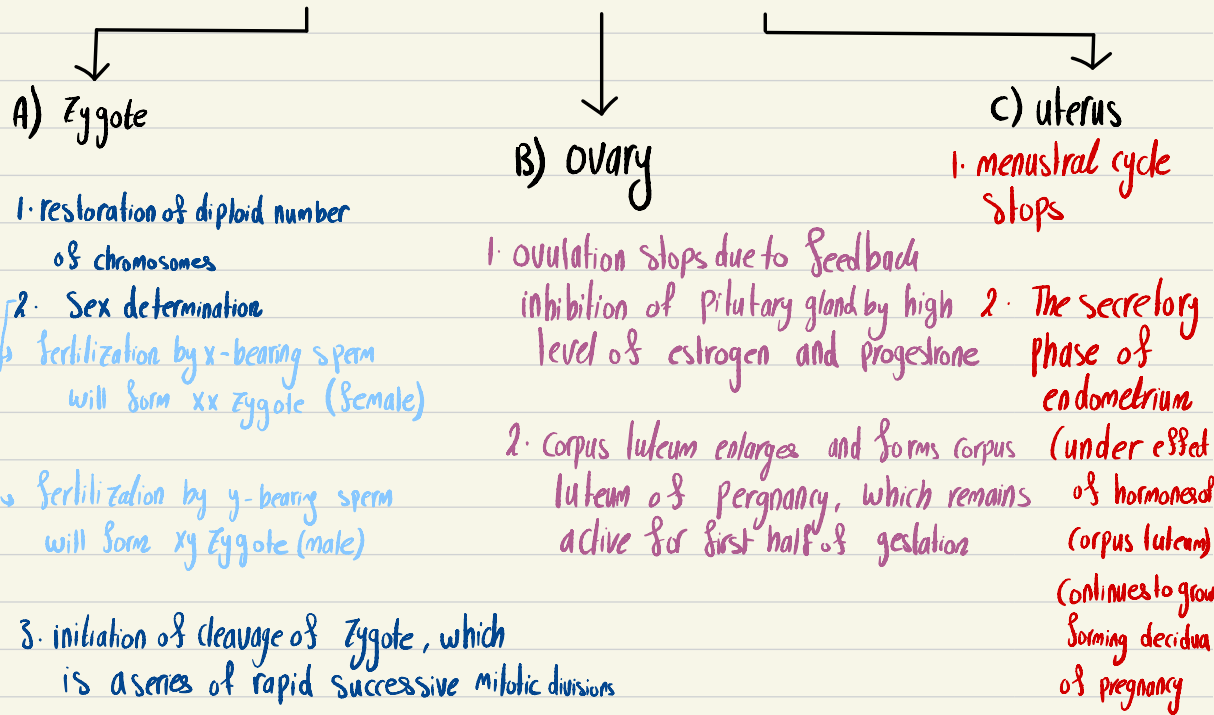 A) Zygote
1. restoration of diploid number
of chromosomes
2. Sex determination
fertilization by x-bearing sperm
will form xx zygote (female)
fertilization by y-bearing sperm
will form xy zygote (male)
3. initiation of cleavage of zygote, which
is a series of rapid successive mitotic divisions
B) ovary
1. ovulation stops due to feedback
inhibition of pitutary gland by high
level of estrogen and progestrone
2. corpus luteum enlarges and forms corpus
luteum of pergnancy, which remains
active for first half of gestation
C) uterus
1. menustral cycle
stops
2. The secretory
phase of
endometrium
(under effect
of hormones of
corpus luteum)
continues to grow
forming decidua
of pregnancy